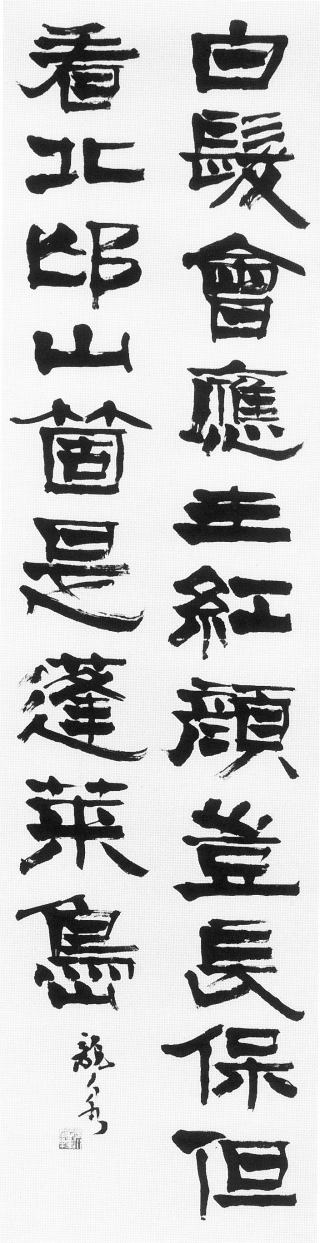 白髮會應生紅顏豈長保但
看北邙山箇是蓬萊島